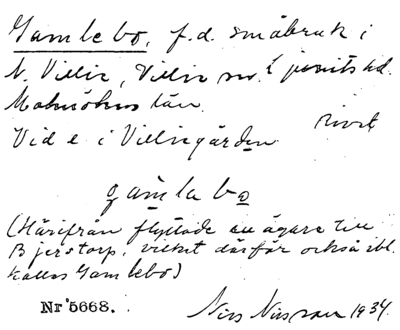 Gamlebo, f.d. småbruk i
N. Villie, Villie sn. Ljunits hd.
Malmöhus län.
rivet
Vid e i Villiegården
gamla bo
(Härifrån flyttade en ägare till
Bjerstorp, vilket därför också ibl.
kallas Gamlebo)
Nr 5668.
Nils Nilsson 1934.